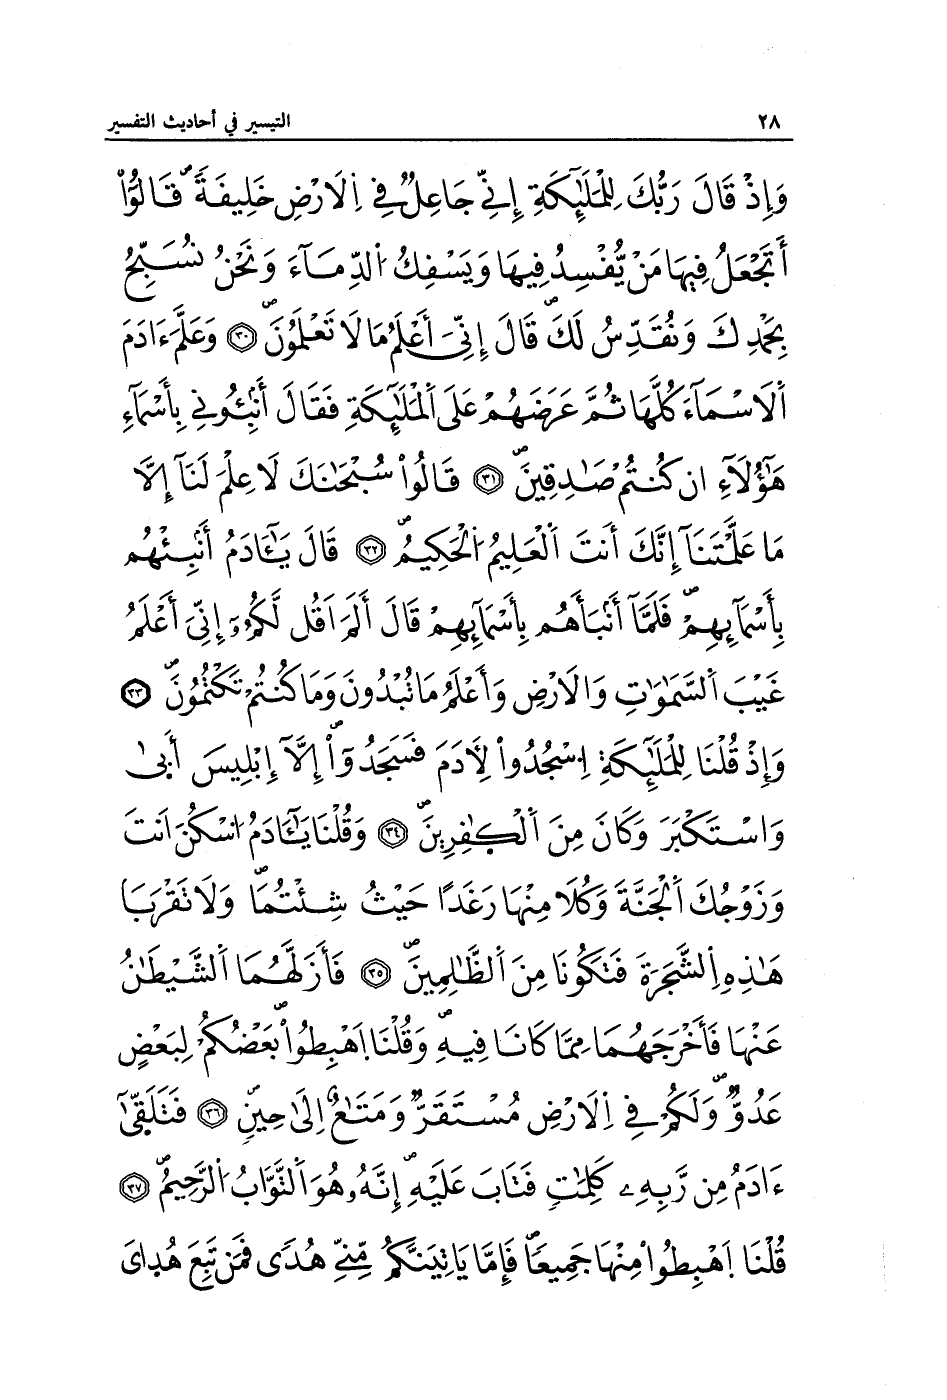 ٢٨ التيسير في أحاديث التفسير
وَإِذْ قَالَ رَبُّكَ لِلْمَلَٰٓئِكَةِ إِنِّے جَاعِلٌ فِے اِلَارْضِ خَلِيفَةٗ قَالُوٓاْ
أَتَجْعَلُ فِيهَا مَنْ يُّفْسِدُ فِيهَا وَيَسْفِكُ اُلدِّمَآءَ وَنَحْنُ نُسَبِّحُ
بِحَمْدِكَ وَنُقَدِّسُ لَكَۖ قَالَ إِنِّيَ أَعْلَمُ مَا لَا تَعْلَمُونَۖ ٣٠ وَعَلَّمَ ءَادَمَ
اَلَاسْمَآءَ كُلَّهَا ثُمَّ عَرَضَهُمْ عَلَى اَلْمَلَٰٓئِكَةِ فَقَالَ أَنۢبِـُٔونِے بِأَسْمَآءِ
هَٰٓؤُلَآءِ ان كُنتُمْ صَٰدِقِينَۖ ٣١ قَالُواْ سُبْحَٰنَكَ لَا عِلْمَ لَنَآ إِلَّا
مَا عَلَّمْتَنَآ إِنَّكَ أَنتَ اَلْعَلِيمُ اُلْحَكِيمُۖ ٣٢ قَالَ يَٰٓـَٔادَمُ أَنۢبِئْهُم
بِأَسْمَآئِهِمْۖ فَلَمَّآ أَنۢبَأَهُم بِأَسْمَآئِهِمْ قَالَ أَلَمَ اَقُل لَّكُمُۥٓ إِنِّيَ أَعْلَمُ
غَيْبَ اَلسَّمَٰوَٰتِ وَالَارْضِ وَأَعْلَمُ مَا تُبْدُونَ وَمَا كُنتُمْ تَكْتُمُونَۖ ٣٣
وَإِذْ قُلْنَا لِلْمَلَٰٓئِكَةِ اِسْجُدُواْ لِأَدَمَ فَسَجَدُوٓاْ إِلَّآ إِبْلِيسَ أَبٰى
وَاسْتَكْبَرَ وَكَانَ مِنَ اَلْكٰفِرِينَۖ ٣٤ وَقُلْنَا يَٰٓـَٔادَمُ اُسْكُنَ اَنتَ
وَزَوْجُكَ اَلْجَنَّةَ وَكُلَا مِنْهَا رَغَداً حَيْثُ شِئْتُمَاۖ وَلَا تَقْرَبَا
هَٰذِهِ اِلشَّجَرَةَ فَتَكُونَا مِنَ اَلظَّٰلِمِينَۖ ٣٥ فَأَزَلَّهُمَا اَلشَّيْطَٰنُ
عَنْهَا فَأَخْرَجَهُمَا مِمَّا كَانَا فِيهِۖ وَقُلْنَا اَهْبِطُواْۖ بَعْضُكُمْ لِبَعْضٍ
عَدُوّٞۖ وَلَكُمْ فِے اِلَارْضِ مُسْتَقَرّٞ وَمَتَٰعٌ إِلَىٰ حِينٖۖ ٣٦ فَتَلَقّٰىٓ
ءَادَمُ مِن رَّبِّهِۦ كَلِمَٰتٖ فَتَابَ عَلَيْهِۖ إِنَّهُۥ هُوَ اَلتَّوَّابُ اُلرَّحِيمُۖ ٣٧
قُلْنَا اَهْبِطُواْ مِنْهَا جَمِيعاٗۖ فَإِمَّا يَاتِيَنَّكُم مِّنِّے هُدىٗ فَمَن تَبِعَ هُدِايَ